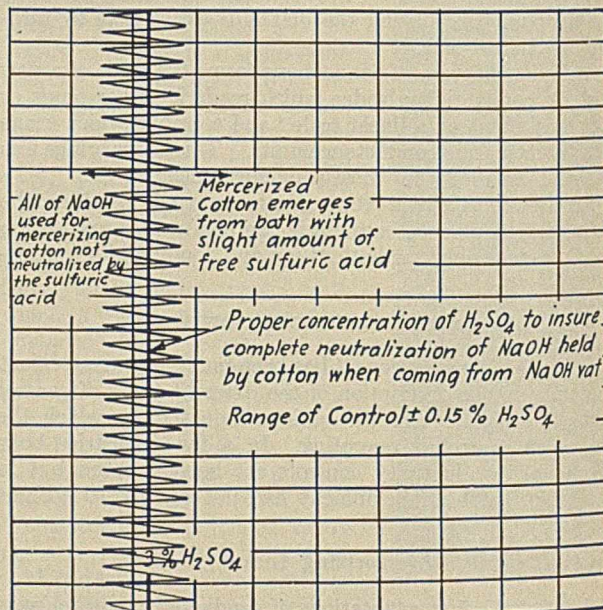 All of NaOH
used for
mercerizing
cotton not
neutralized by
the sulfuric
acid
Mercerized
Cotton emerges
from bath with
slight amount of
free sulfuric acid
Proper concentration of H₂SO₄ to insure
complete neutralization of NaOH held
by cotton when coming from NaOH vat
Range of Control ± 0.15 % H₂SO₄
3 % H₂SO₄